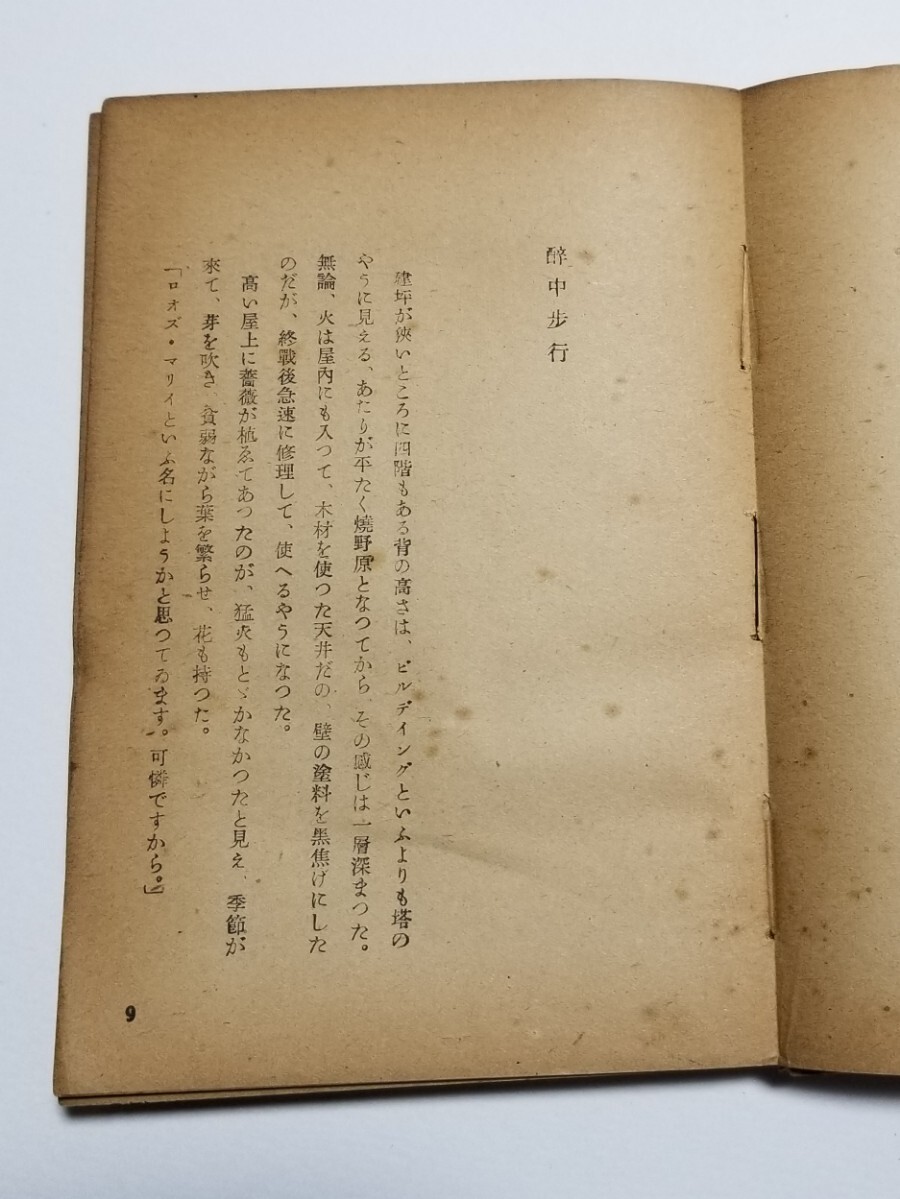 醉中步行
建坪が狹いところに四階もある背の高さは、ビルデイングといふよりも塔の
やうに見える、あたりが平たく燒野原となつてから、その感じは一層深まつた。
無論、火は屋內にも入つて、木材を使つた天井だの、壁の塗料を黑焦げにした
のだが、終戰後急速に修理して、使へるやうになつた。
高い屋上に薔薇が植ゑてあつたのが、猛火もとゞかなかつたと見え、季節が
來て、芽を吹き、貧弱ながら葉を繁らせ、花も持つた。
「ロオズ・マリイといふ名にしようかと思つてゐます。可憐ですから。」
9